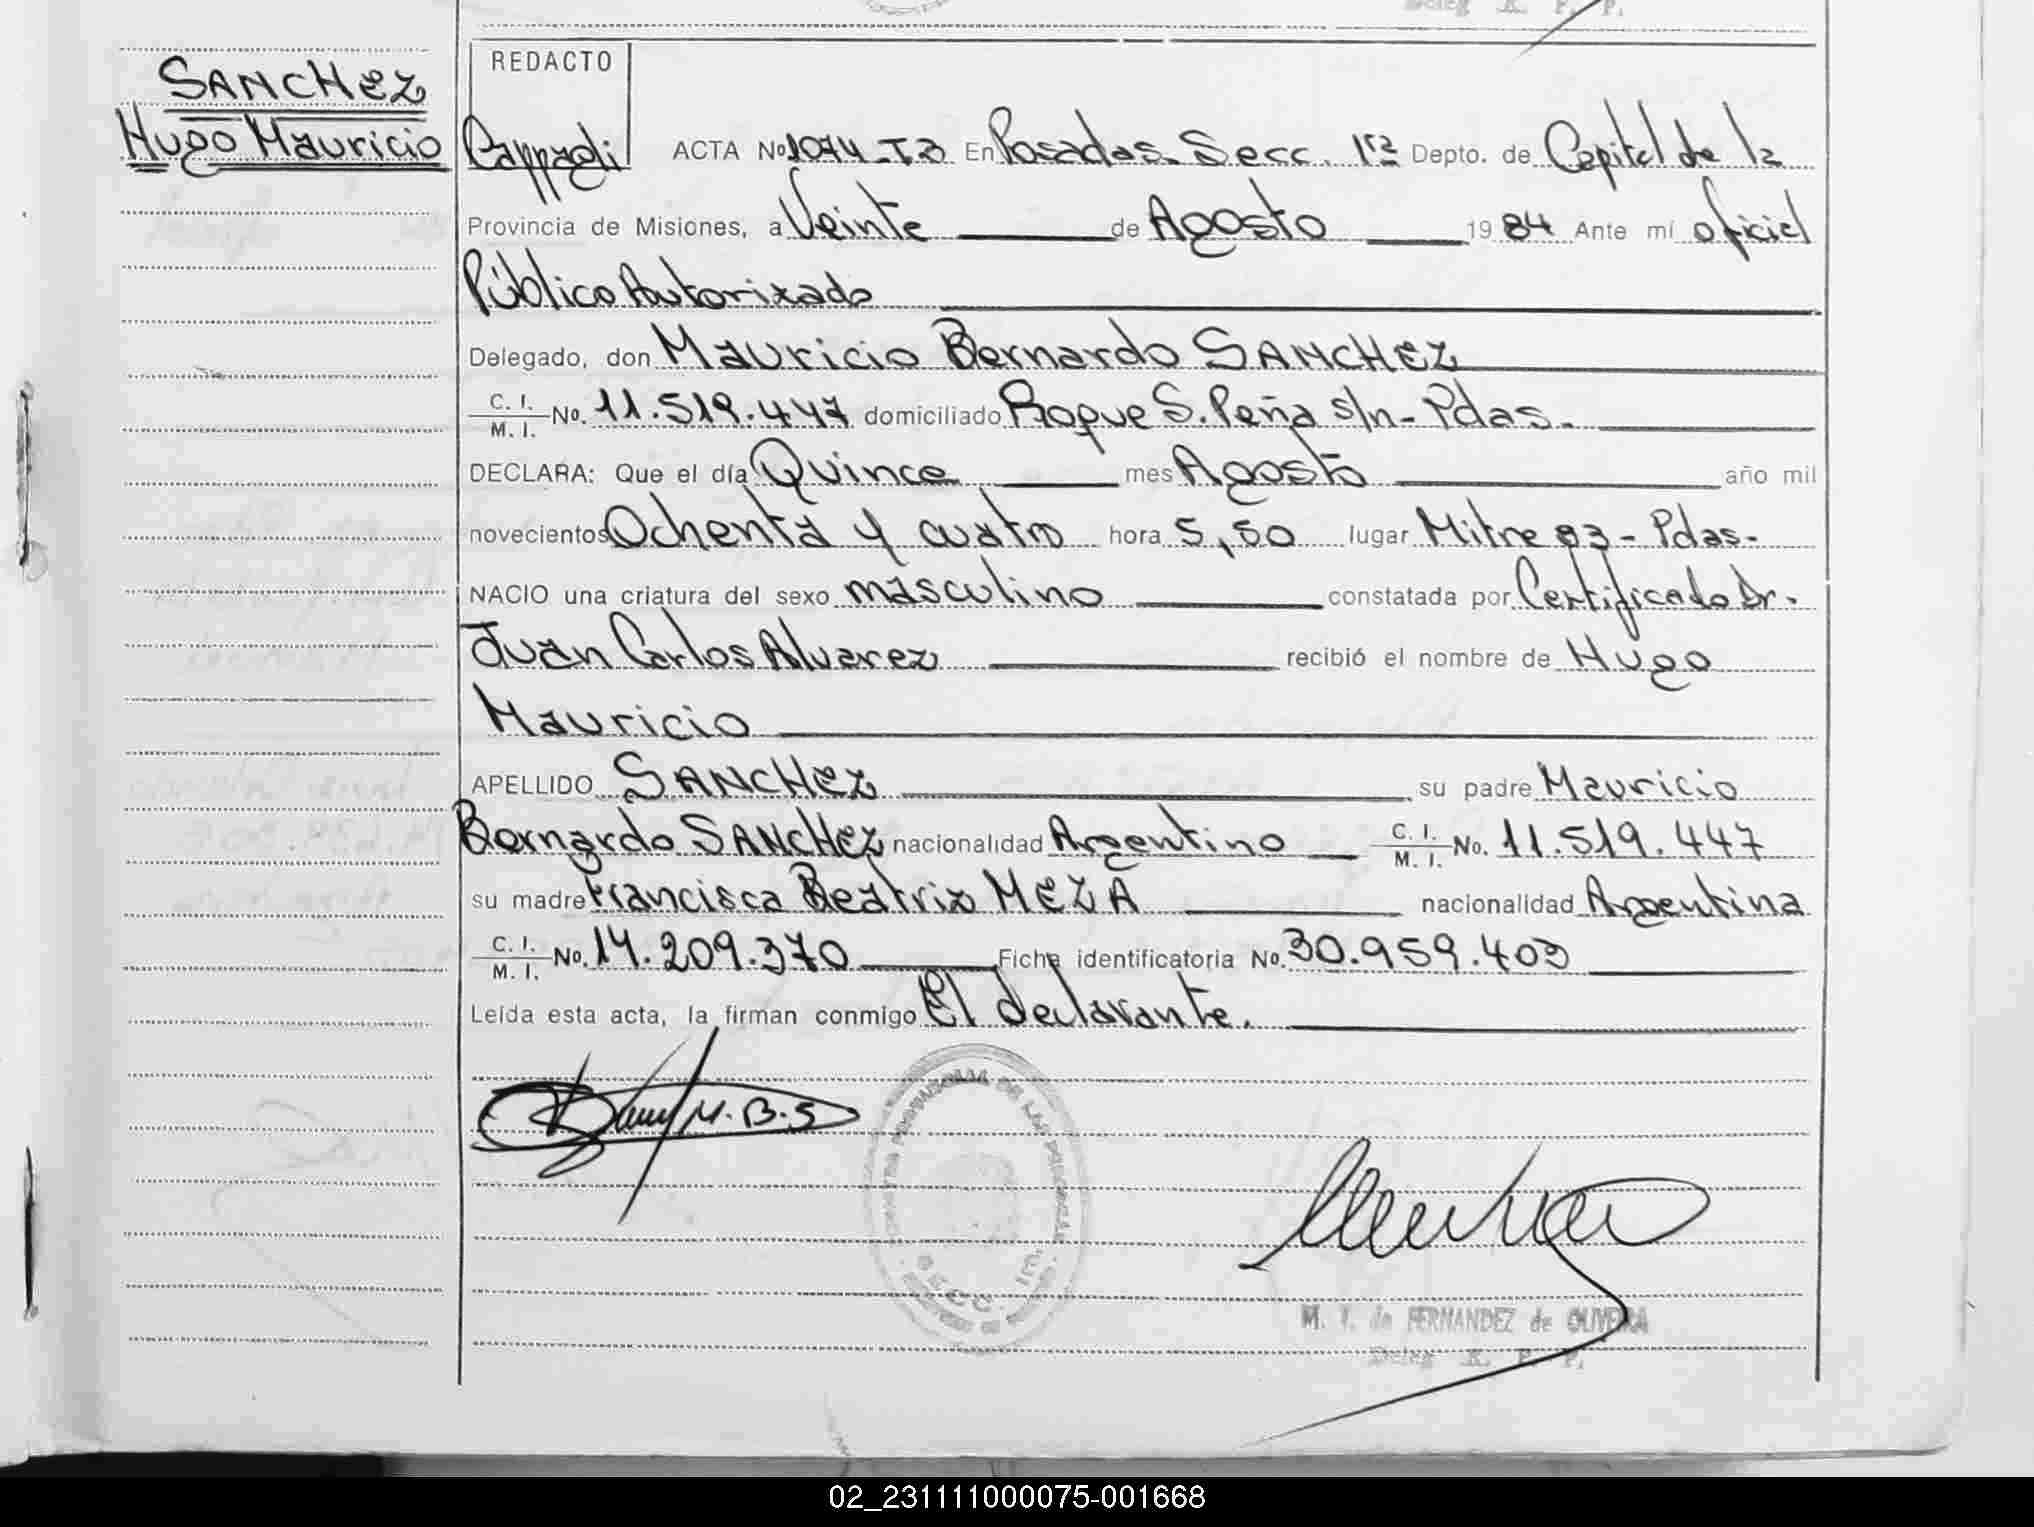 Deleg. R. P. P.
SANCHEZ
Hugo Mauricio
REDACTO
ACTA No 1074-TB En Posadas. Secc. 1ra Depto. de Capital de la
Provincia de Misiones, a Veinte de Agosto 1984 Ante mí oficial
Público Autorizado
Delegado, don Mauricio Bernardo SANCHEZ
C. I. / M. I. No. 11.519.447 domiciliado Roque S. Peña s/n - Pdas.
DECLARA: Que el día Quince mes Agosto año mil
novecientos Ochenta y cuatro hora 5,50 lugar Mitre 93 - Pdas-
NACIO una criatura del sexo masculino constatada por Certificado Dr.
Juan Carlos Alvarez recibió el nombre de Hugo
Mauricio
APELLIDO SANCHEZ su padre Mauricio
Bernardo SANCHEZ nacionalidad Argentino C. I. / M. I. No. 11.519.447
su madre Francisca Beatriz MEZA nacionalidad Argentina
C. I. / M. I. No. 14.209.370 Ficha identificatoria No. 30.959.403
Leída esta acta, la firman conmigo El declarante.
M.B.S
SECC. 1ra.
M. I. de FERNANDEZ de OLIVEIRA
Deleg. R. P. P.
02_231111000075-001668